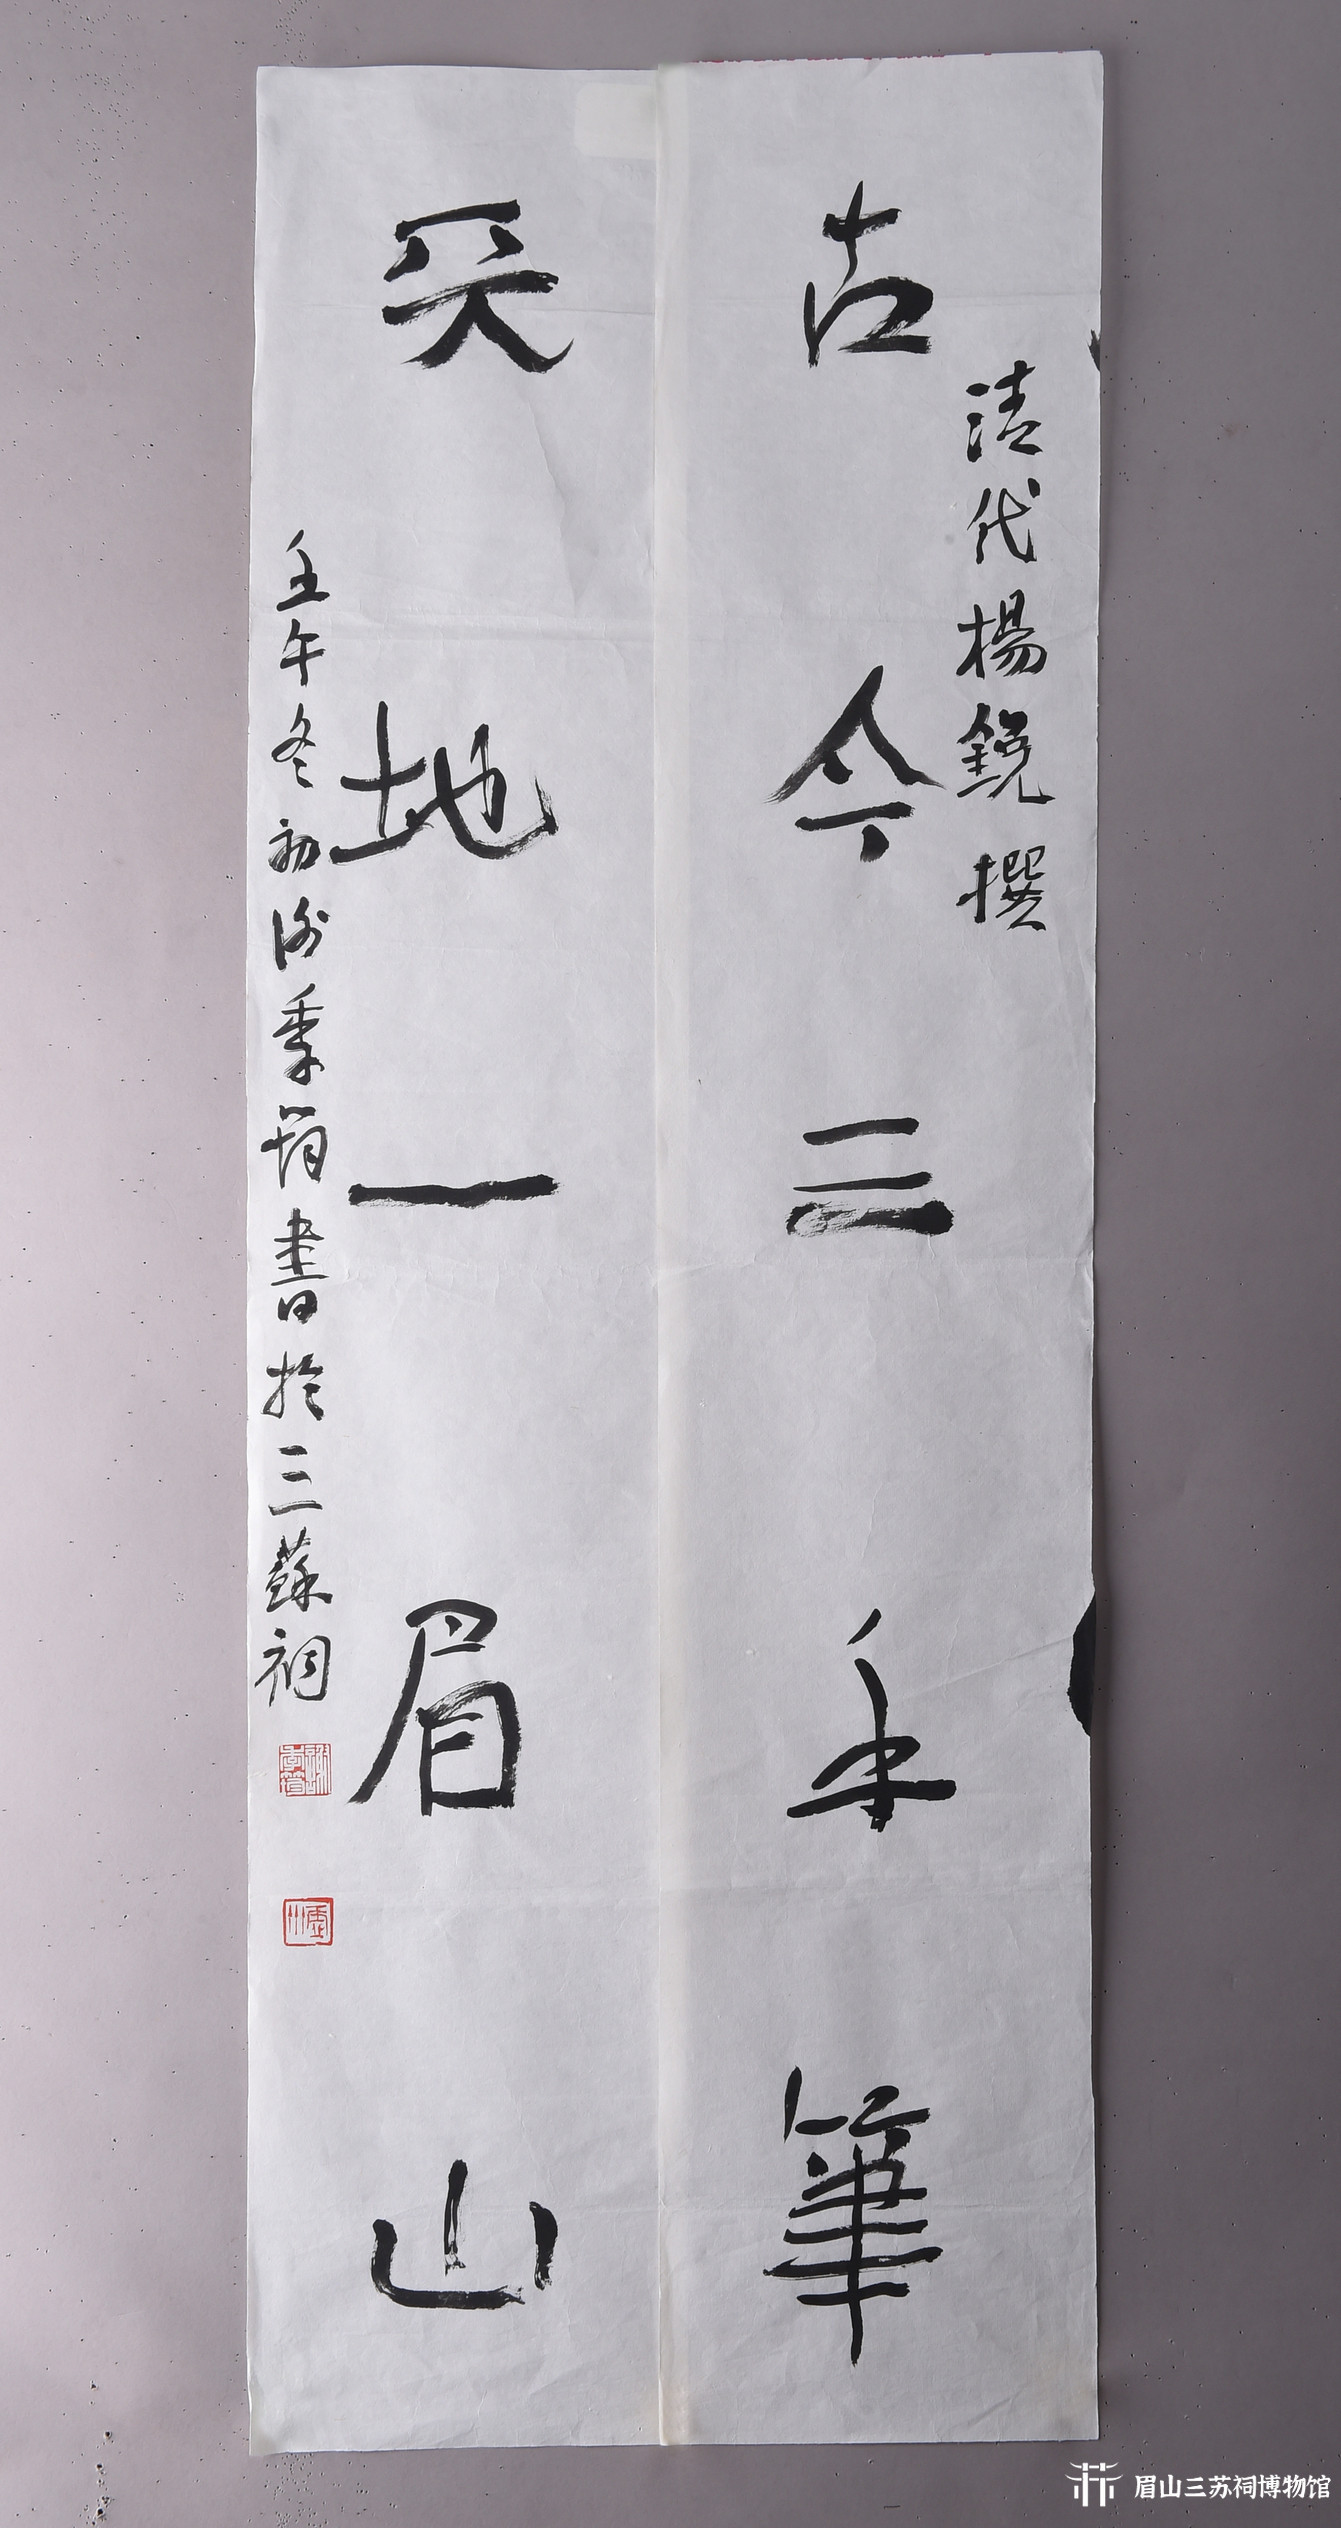 清代楊銳撰
古今三手筆
天地一眉山
壬午冬初謝季筠書於三蘇祠
謝季筠
眉山三苏祠博物馆